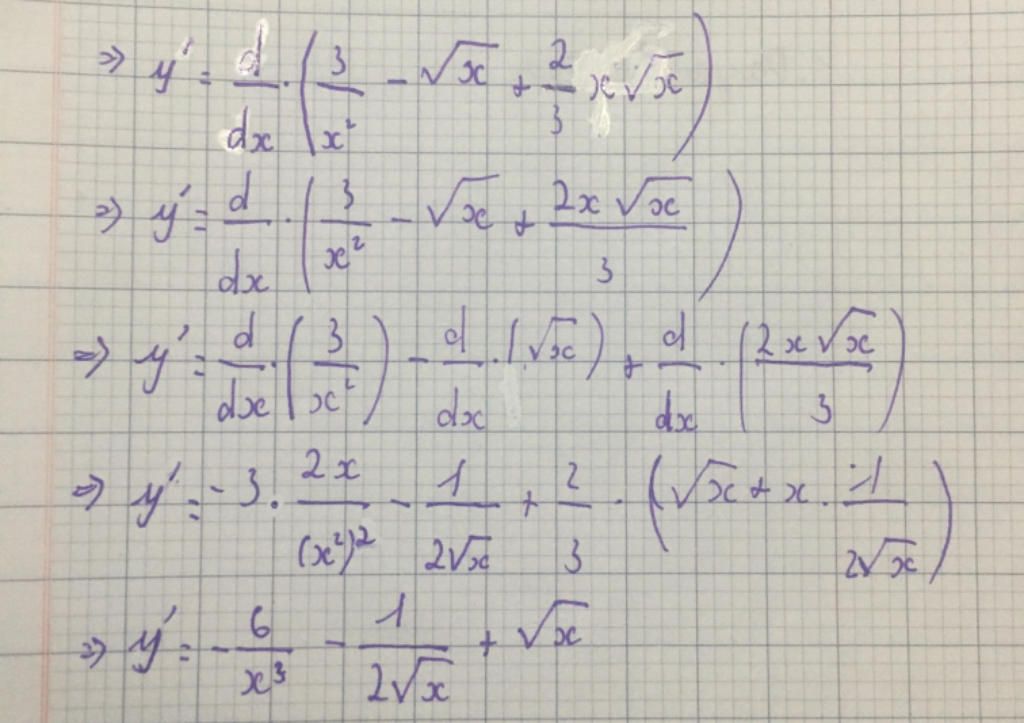 ⇒ y' = d/dx · (3/x² - √x + 2/3 x√x)
⇒ y' = d/dx · (3/x² - √x + 2x√x/3)
⇒ y' = d/dx · (3/x²) - d/dx · (√x) + d/dx · (2x√x/3)
⇒ y' = -3 · 2x/(x²)² - 1/2√x + 2/3 · (√x + x · 1/2√x)
⇒ y' = -6/x³ - 1/2√x + √x